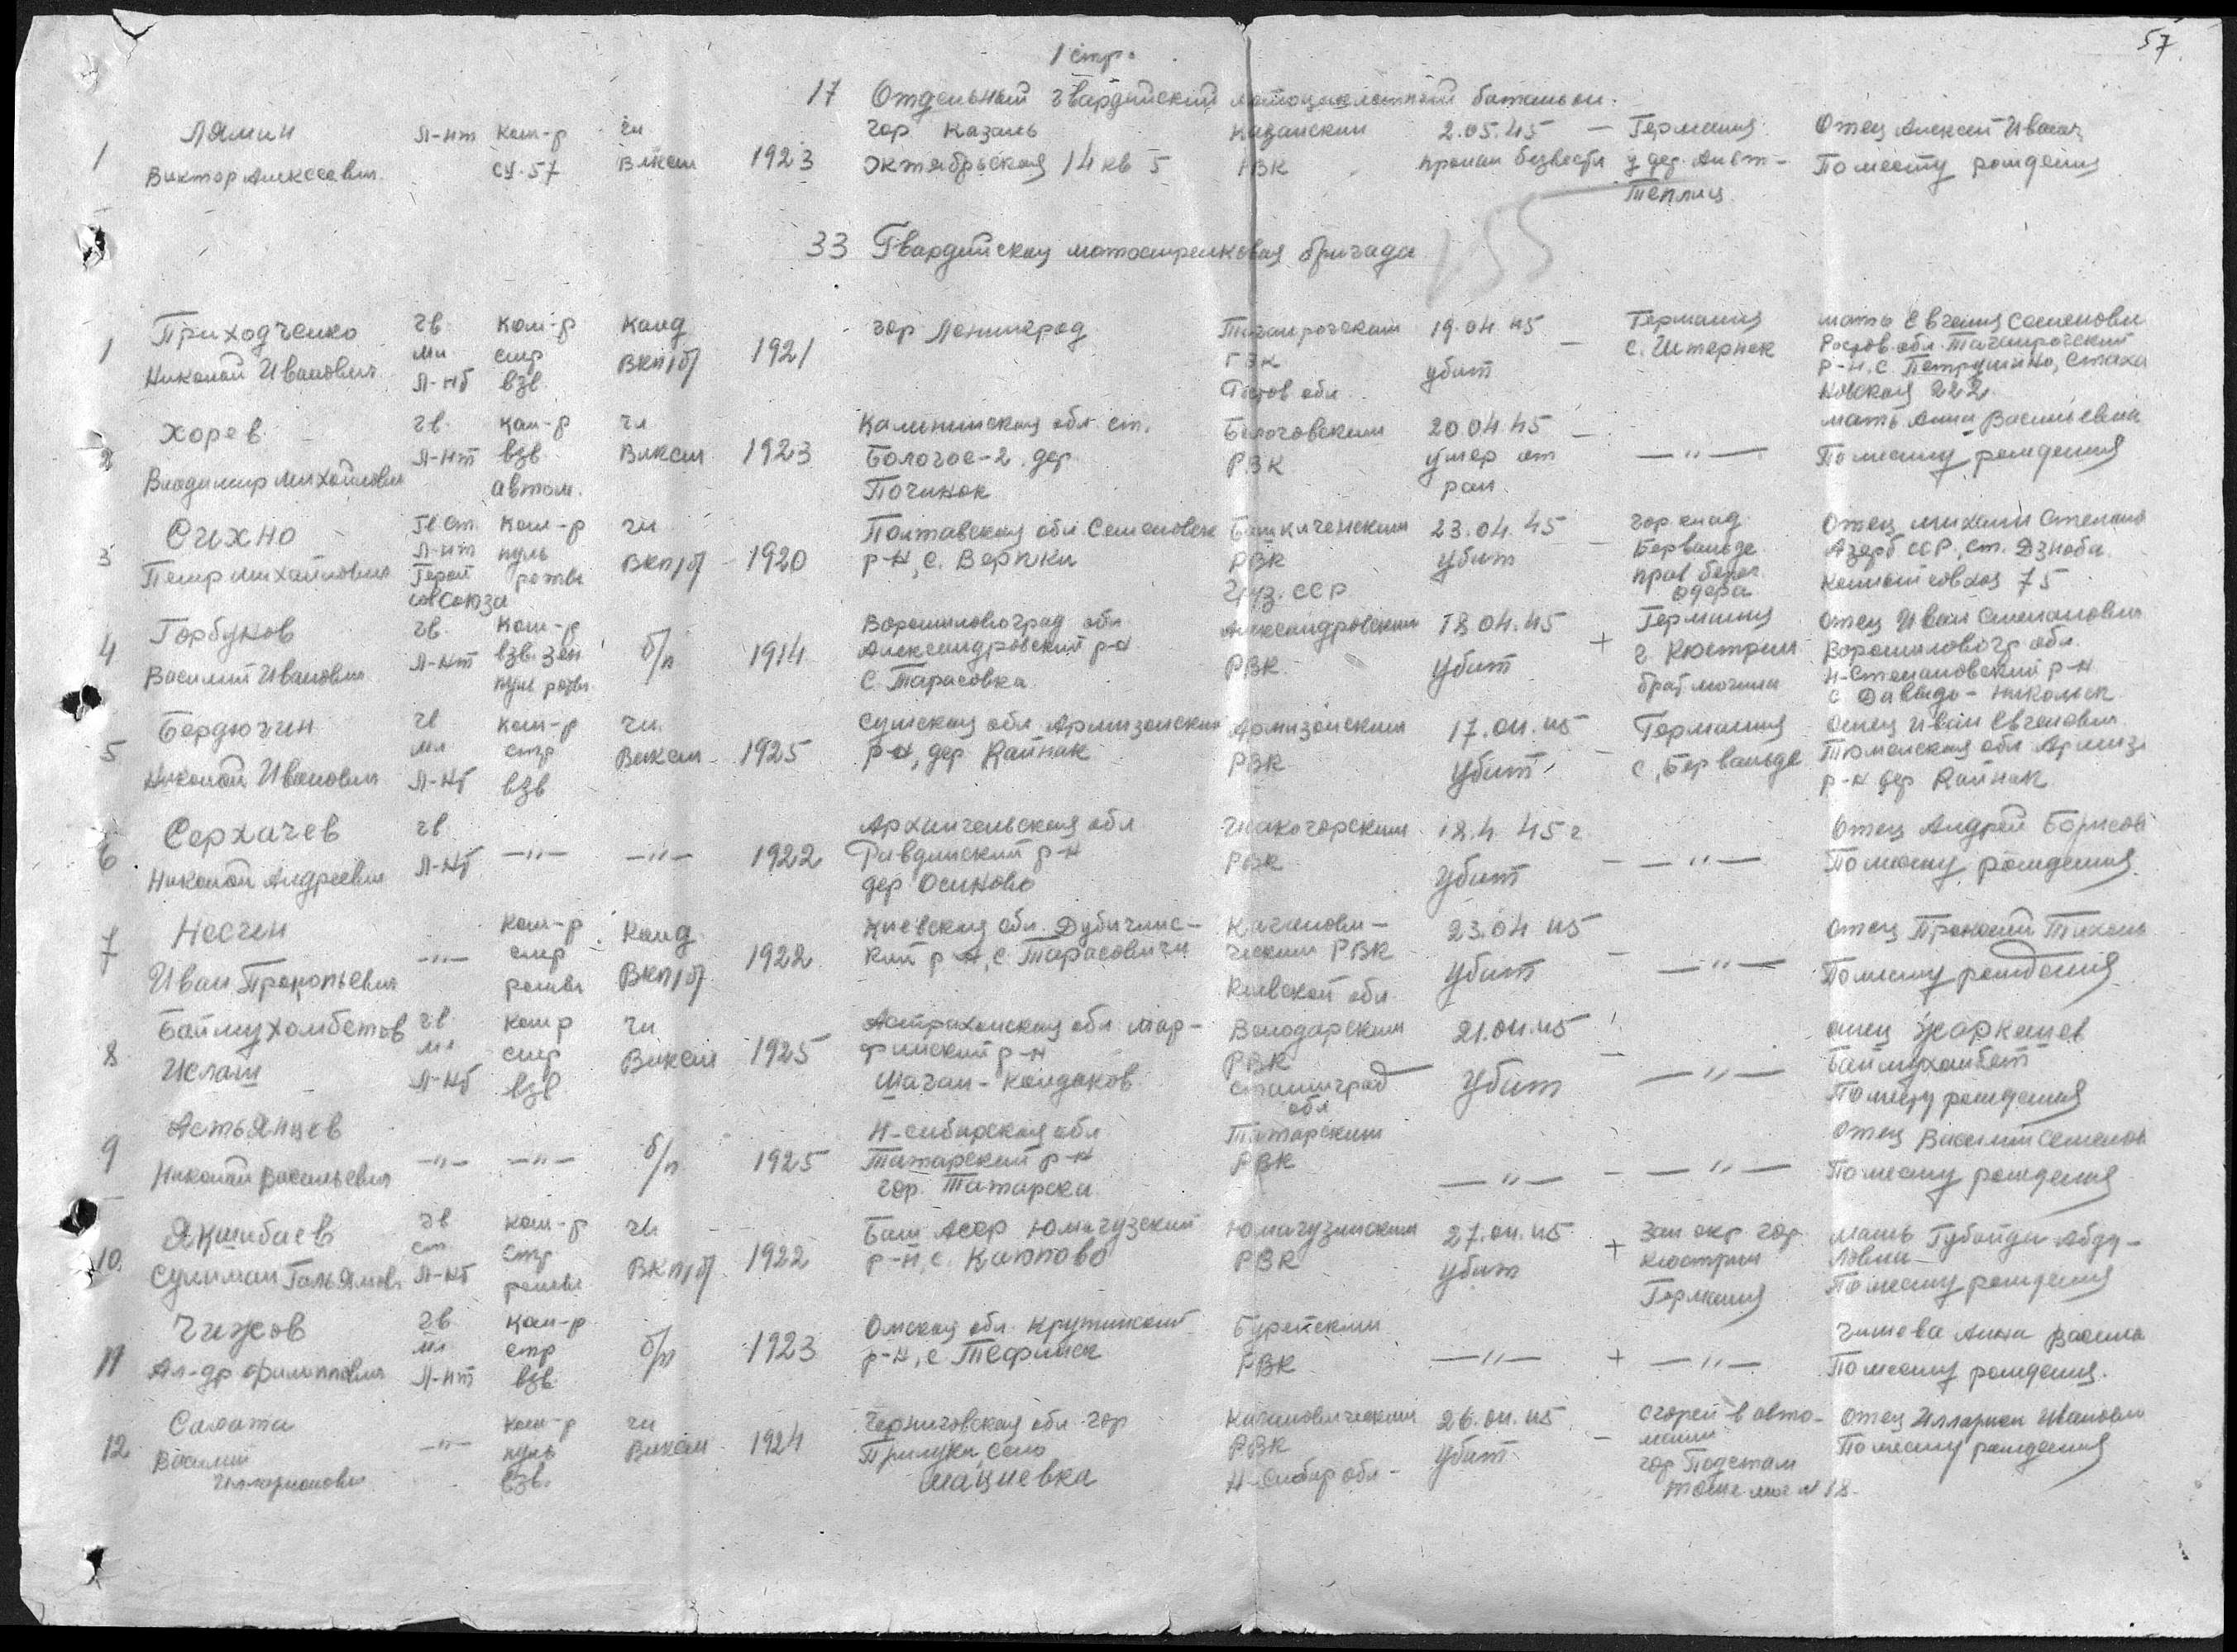 57
1 стр.
17 Отдельный гвардейский мотоциклетный батальон.
1 Лямин Виктор Алексеевич Л-нт Ком-р СУ-57 чл Влксм 1923 гор. Казань Октябрьская 14 кв 5 Казанским РВК 2.05.45 пропал безвести — Германия у дер. Теплиц Отец Алексей Иванов По месту рождения
33 Гвардейская мотострелковая бригада
155
1 Приходченко Николай Иванович гв. мл Л-нт ком-р стр взв. Канд ВКП/б/ 1921 гор Ленинград Таганрогским ГВК Ростов обл 19.04.45 убит — Германия с. Штернек мать Евгения Семенов Ростов. обл. Таганрогский р-н. с Петрушино, Стаха новская 222.
2 Хорев Владимир Михайлович гв. Л-нт ком-р взв автом. чл Влксм 1923 Калининская обл ст. Бологое-2. дер. Починок Бологовским РВК 20.04.45 умер от ран. — —"— мать Анна Васильевна По месту рождения
3 Сихно Петр Михайлович Гв Ст. Л-нт Герой сов Союза Ком-р пуль роты чл ВКП/б 1920 Полтавская обл Семеновск р-н, с. Вергуны РВК Груз. ССР 23.04.45 убит — гор. клад. Бервальде прав берег одера Отец Михаил Степано Азерб ССР, ст.
4 Горбунов Василий Иванович гв. Л-нт Ком-р взв. зен пул роты б/п 1914 Ворошиловоград обл Александровский р-н С. Тарасовка Александровским РВК. 18.04.45 убит + Германия г. Кюстрин брат могила отец Иван Степанович Ворошиловогр обл. Н-Степановский р-н с Давыдо-Никольск
5 Бердюгин Николай Иванович гв мл Л-нт ком-р стр взв чл. Влксм 1925 Омская обл Армизонский р-н, дер Кайнак Армизонским РВК 17.04.45 убит — Германия с. Бервальде отец Иван Евгенович Тюменская обл Армиз р-н дер Кайнак
6 Серхачев Николай Андреевич гв Л-нт —"— —"— 1922 Архангельская обл р-н дер Осиново РВК 18.4.45 г убит — —"— Отец Андрей Борисов По месту рождения.
7 Иван Прокопьевич —"— ком-р стр роты Канд ВКП/б/ 1922 Киевская обл. р-н, с. Тарасовичи Каганови- ческим РВК Киевской обл 23.04.45 убит — —"— отец Прокопий Тихон По месту рождения
8 Баймухамбетов Ислаш гв мл Л-нт ком р стр взв чл Влксм 1925 Астраханская обл Мар- финский р-н Шаган-Кондаков Володарским РВК Сталинград обл 21.04.45 убит — —"— отец Жаркенев Баймухамбет По месту рождения
9 Астьянцев Николай Васильевич —"— —"— б/п. 1925 Н-сибирская обл Татарский р-н гор. Татарска Татарским РВК —"— — —"— Отец Василий Семенов По месту рождения
10. Якшибаев Сулиман Гальямов гв ст. Л-нт ком-р стр роты чл ВКП/б/ 1922 Баш Асср Юмагузский р-н, с. Каппово Юмагузинским РВК 27.04.45 убит + Зап окр гор. Кюстрин Германия мать Губайда Абду- ловна По месту рождения
11 Чижов Ал-др Филиппович гв. мл Л-нт ком-р стр взв. б/п 1923 Омская обл. Крутинский р-н, с Бурейским РВК —"— + —"— Чижова Анна Василь По месту рождения.
12 Салата Василий Илларионович —"— ком-р пуль взв. чл Влксм 1924 Черниговская обл. гор Прилуки, село Мациевка Кагановическим РВК Н-Сибир обл- 26.04.45 убит — сгорел в авто- машин гор. № 18. отец Илларион Иванович По месту рождения